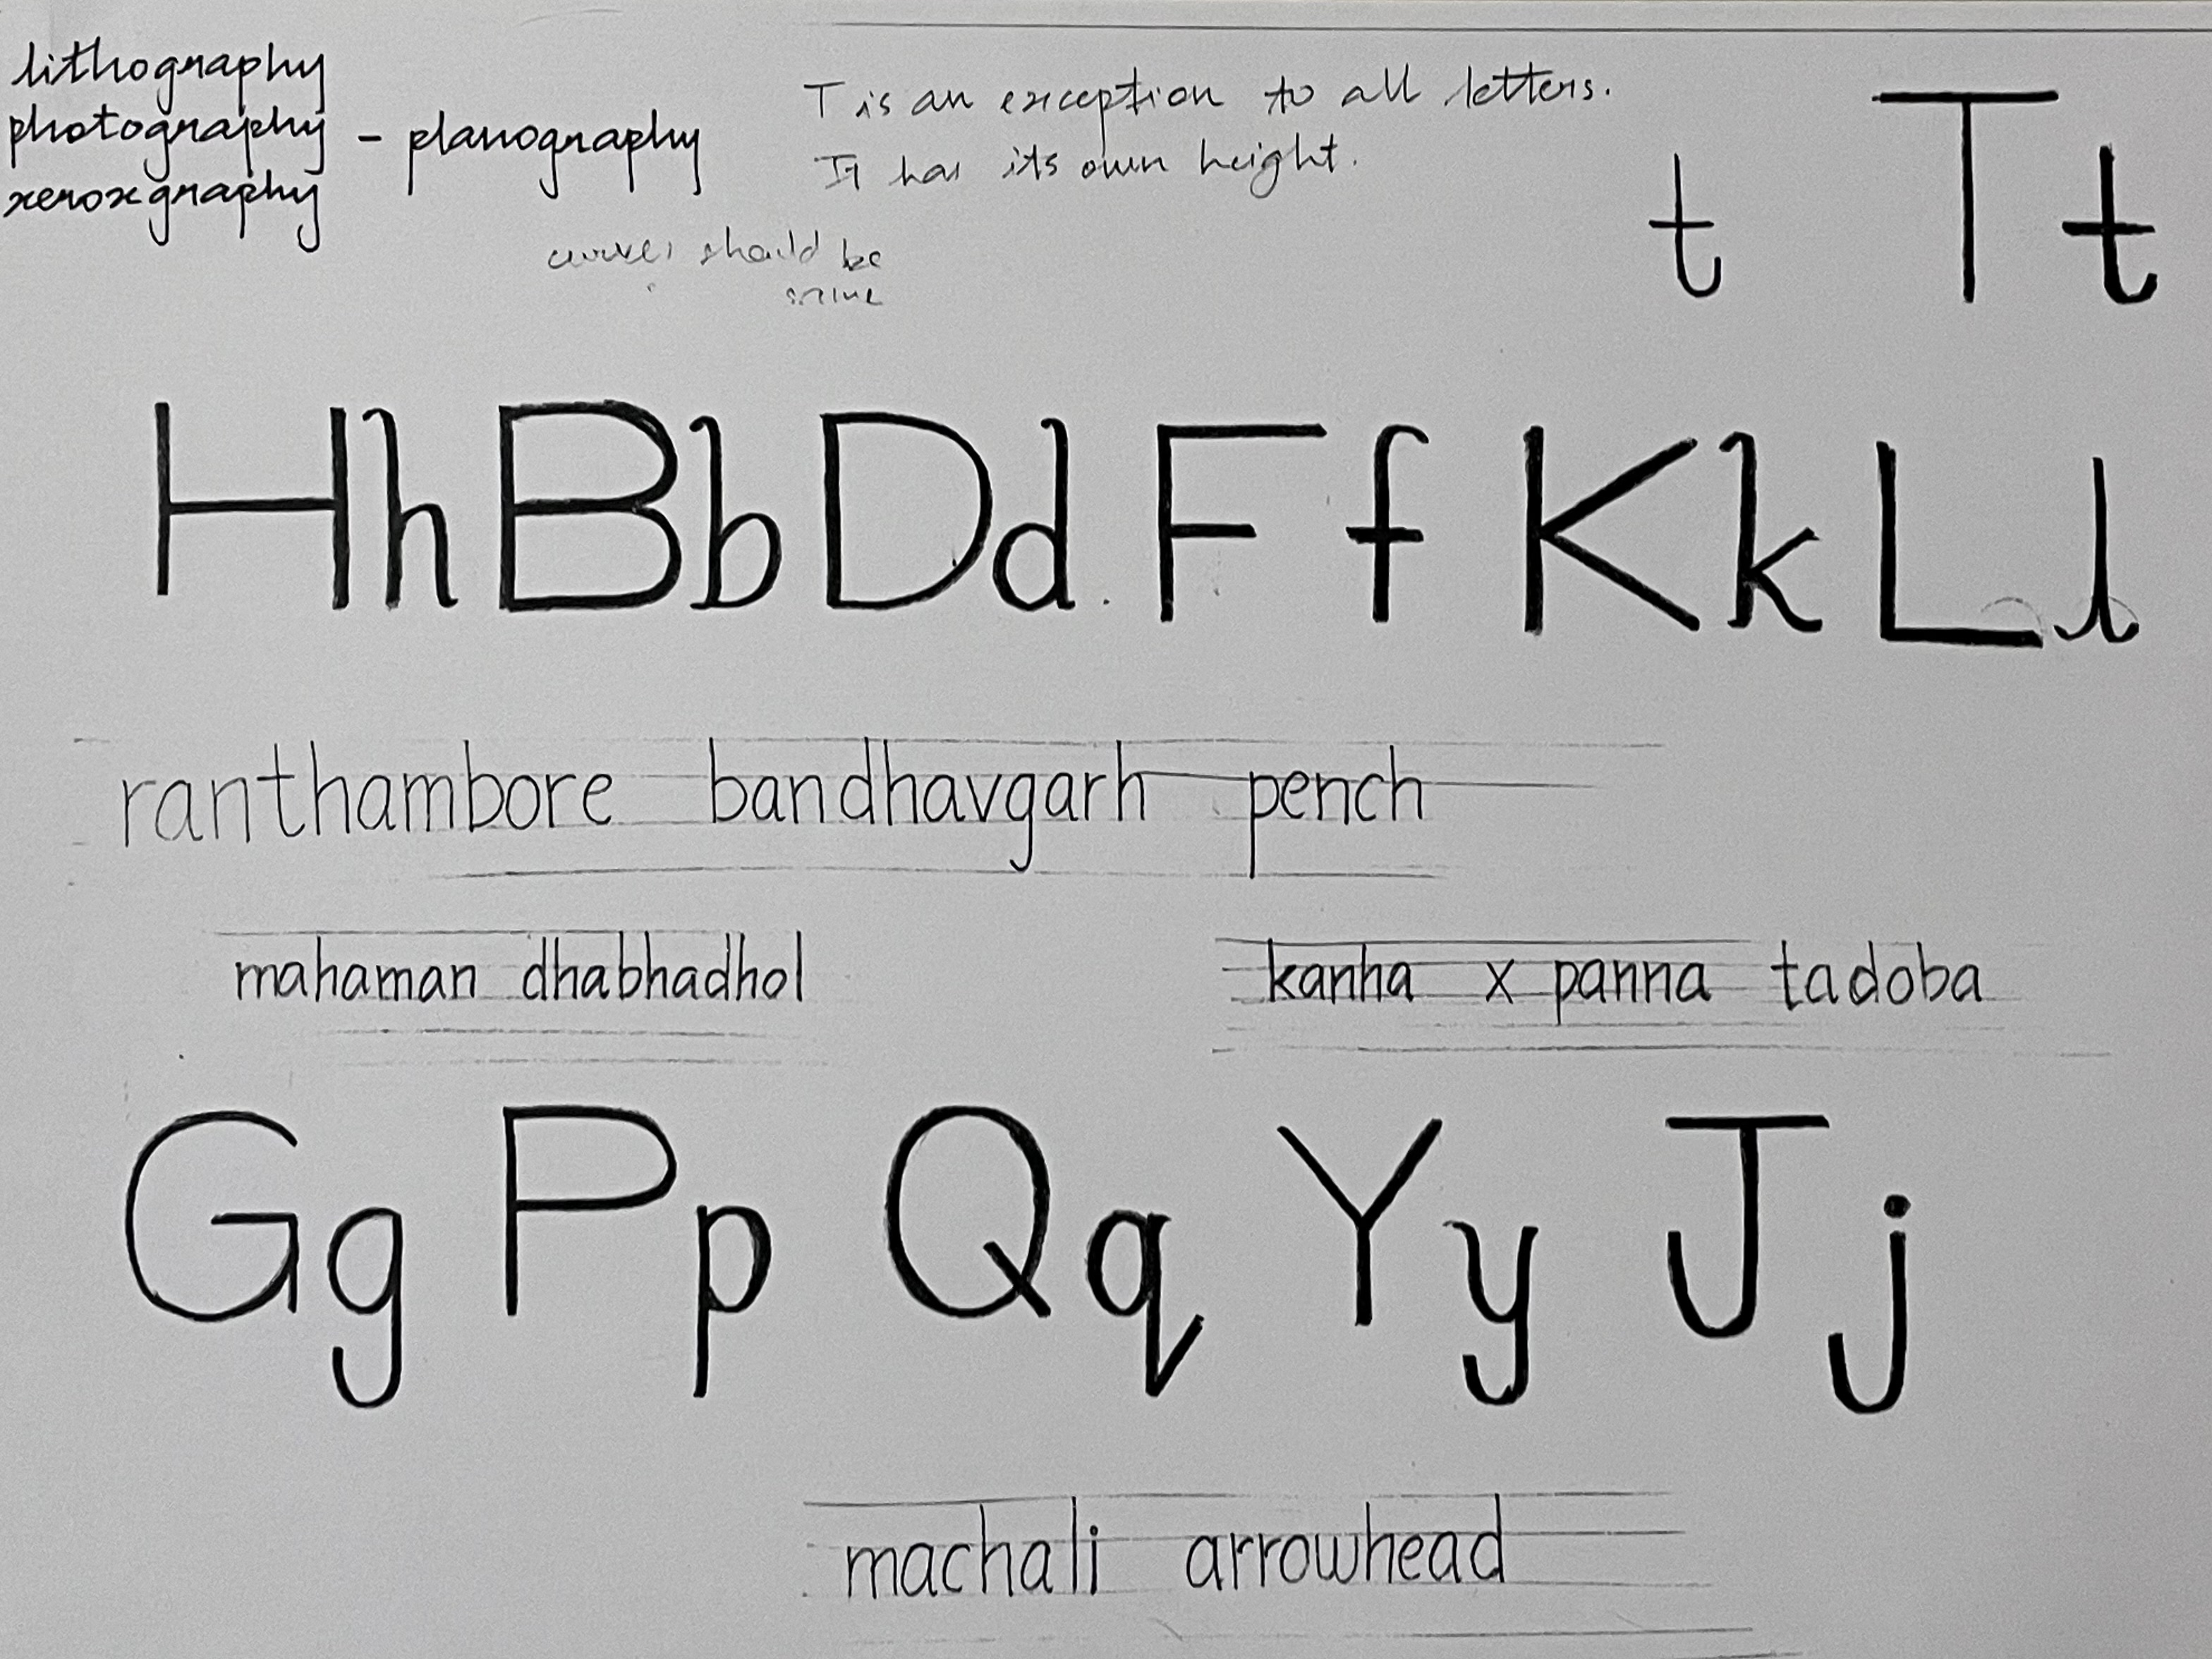 lithography
photography - planography
xeroxgraphy
T is an exception to all letters.
It has its own height.
curves should be
same
t Tt
Hh Bb Dd Ff Kk Ll
ranthambore bandhavgarh pench
mahaman dhabhadhol
kanha x panna tadoba
Gg Pp Qq Yy Jj
machali arrowhead